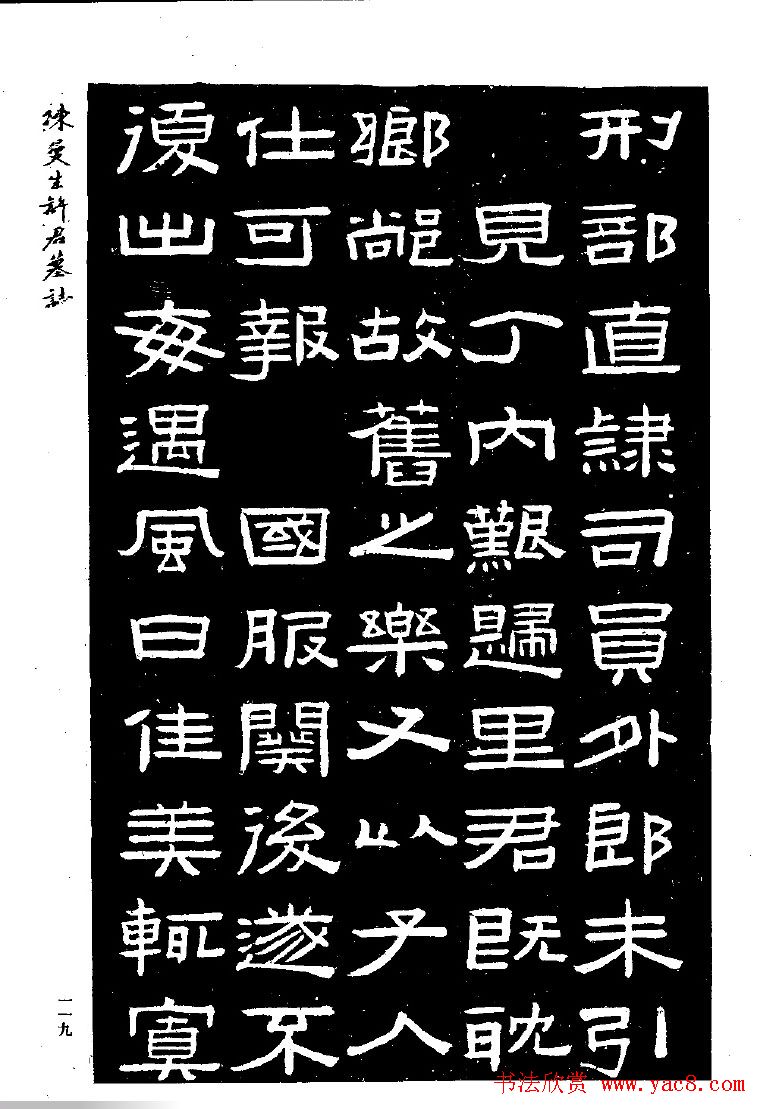 刑部直隸司員外郎未引
見丁內艱歸里君既耽
鄉䣊故舊之樂又以人
仕可報 國服闋後遂不
復出每遇風日佳美輒寘
陳曼生許君墓誌
一一九
书法欣赏 www.yac8.com